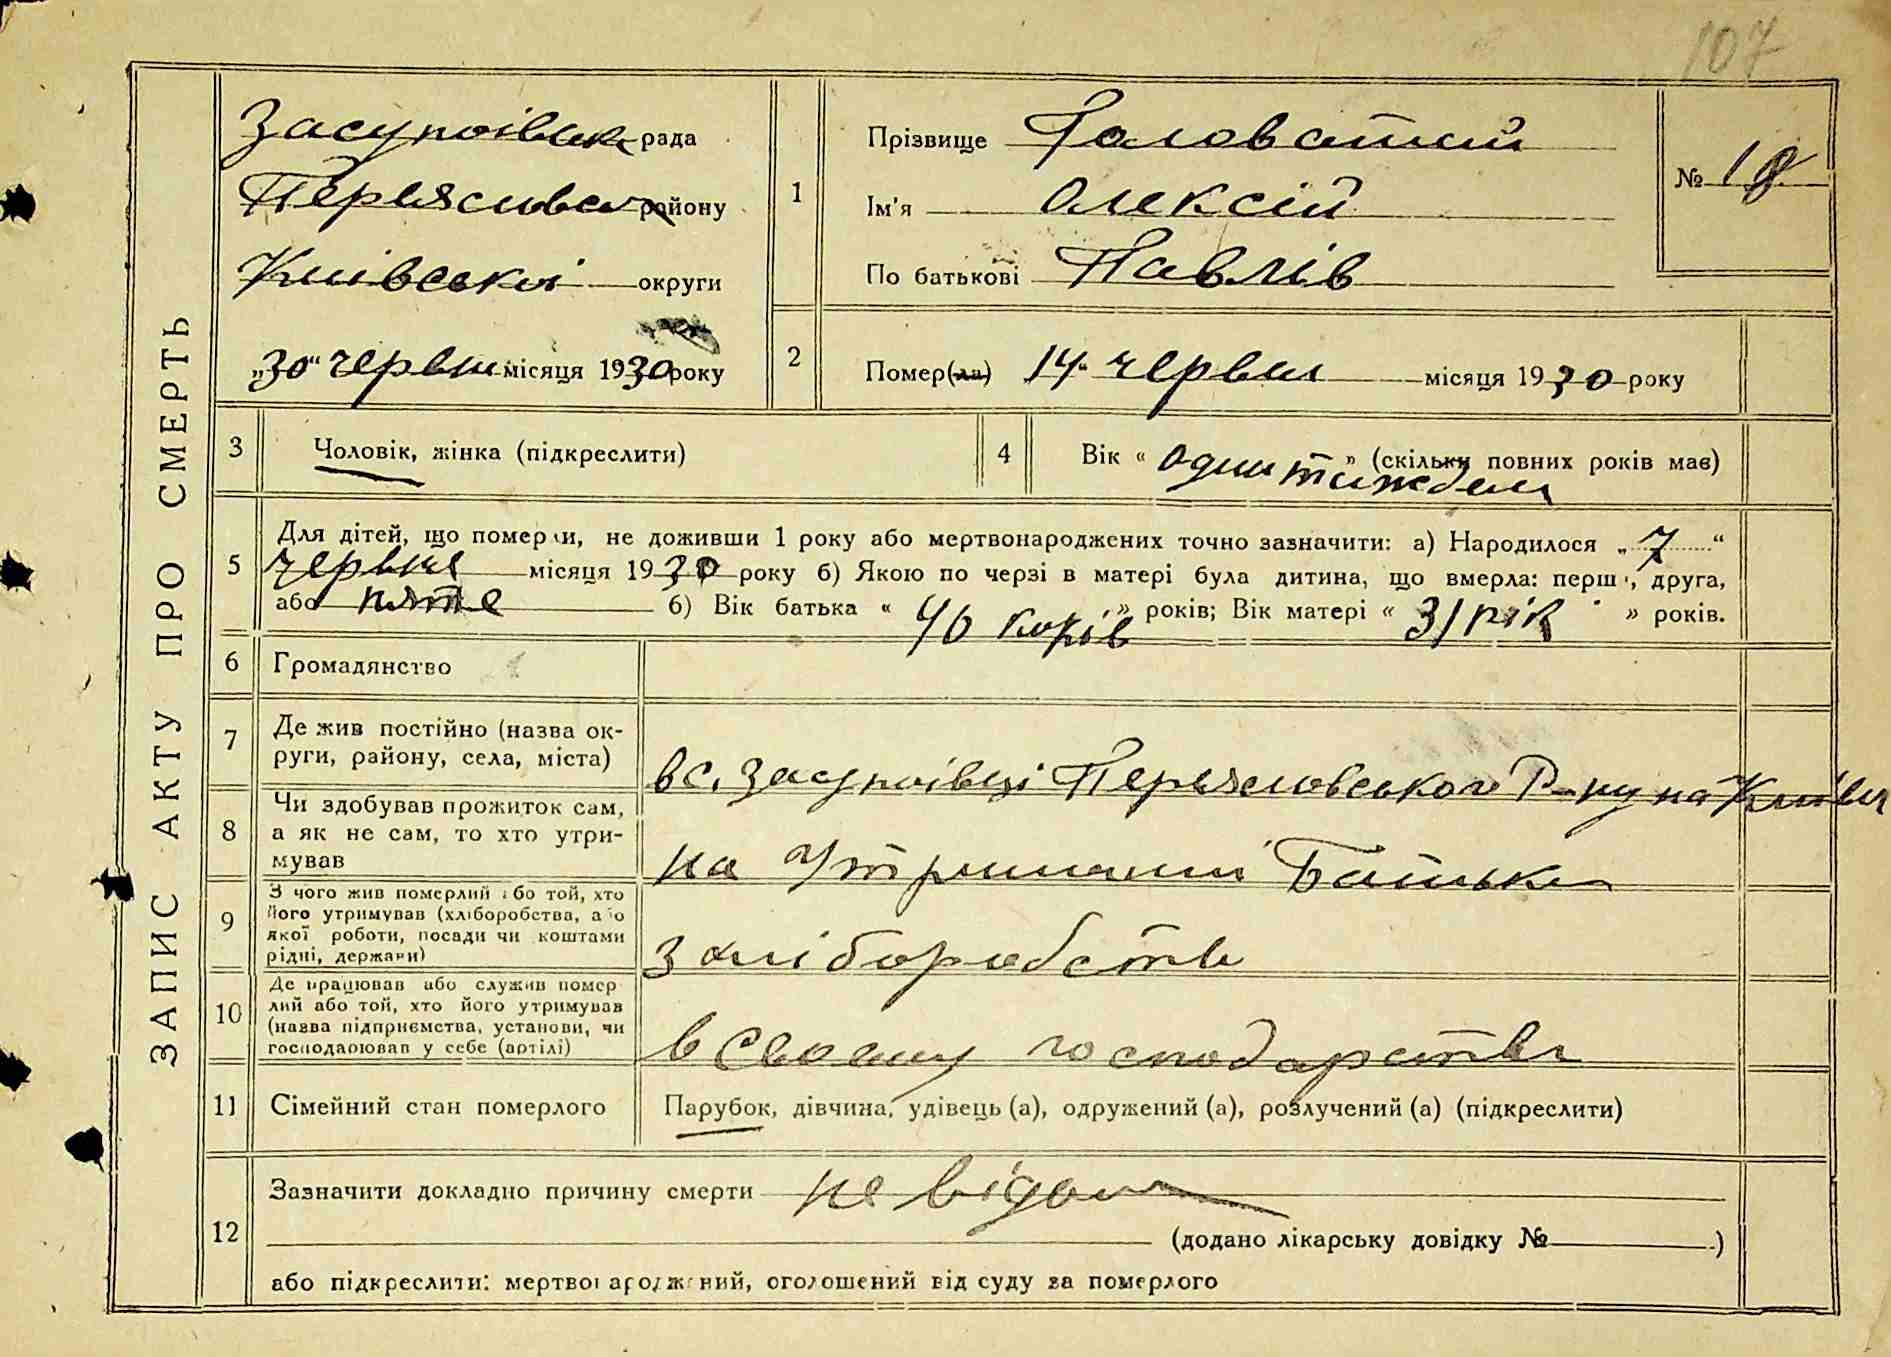 107
ЗАПИС АКТУ ПРО СМЕРТЬ
Засупоївка рада
Переяславськ району
Київської округи
„30“ червня місяця 1930 року
1
Прізвище Головатий
Ім'я Олексій
По батькові Павлів
№ 18
2
Помер(ла) 14“ червня місяця 1930 року
3
Чоловік, жінка (підкреслити)
4
Вік « один » (скільки повних років має)
тиждень
5
Для дітей, що померли, не доживши 1 року або мертвонароджених точно зазначити: а) Народилося „7“
червня місяця 1930 року б) Якою по черзі в матері була дитина, що вмерла: перша, друга,
або пяте б) Вік батька « 40 » років; Вік матері « 31 рік » років.
6
Громадянство
7
Де жив постійно (назва ок-
руги, району, села, міста)
в с. Засупоівці Переяславського Р-ну на Київщ
8
Чи здобував прожиток сам,
а як не сам, то хто утри-
мував
на утриманні Батька
9
З чого жив померлий або той, хто
його утримував (хліборобства, або
якої роботи, посади чи коштами
рідні, держави)
з хліборобств
10
Де працював або служив помер
лий або той, хто його утримував
(назва підприємства, установи, чи
господарював у себе (артілі)
в своему господарстві
11
Сімейний стан померлого
Парубок, дівчина, удівець (а), одружений (а), розлучений (а) (підкреслити)
12
Зазначити докладно причину смерти не відома
(додано лікарську довідку № )
або підкреслити: мертвонароджений, оголошений від суду за померлого